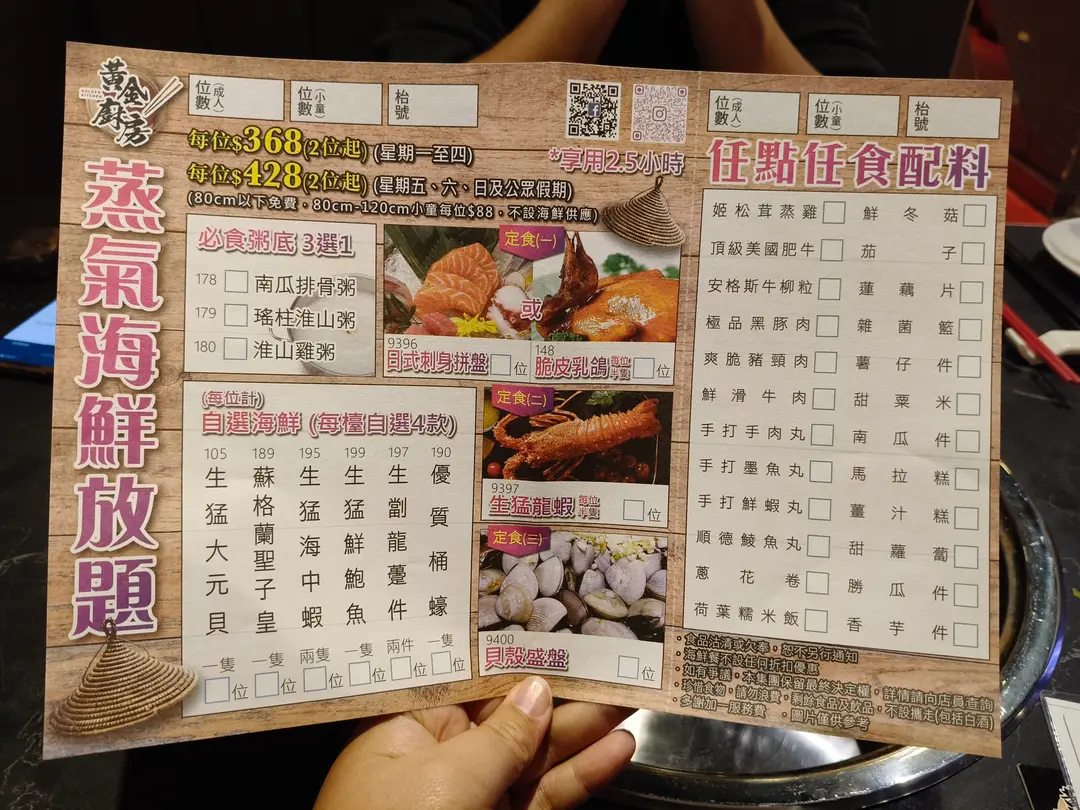 黃金廚房
GOLDEN KITCHEN
蒸氣海鮮放題
位數(成人)
位數(小童)
枱號
每位$368(2位起)(星期一至四)
每位$428(2位起)(星期五、六、日及公眾假期)
(80cm以下免費，80cm-120cm小童每位$88，不設海鮮供應)
*享用2.5小時
必食粥底 3選1
178 南瓜排骨粥
179 瑤柱淮山粥
180 淮山雞粥
定食(一)
9396
日式刺身拼盤 位
或
148
脆皮乳鴿 每位半隻 位
(每位計)
自選海鮮 (每檯自選4款)
105 生猛大元貝 一隻 位
189 蘇格蘭聖子皇 一隻 位
195 生猛海中蝦 兩隻 位
199 生猛鮮鮑魚 一隻 位
197 生劏龍躉件 兩件 位
190 優質桶蠔 一隻 位
定食(二)
9397
生猛龍蝦 每位半隻 位
定食(三)
9400
貝殼盛盤 位
位數(成人)
位數(小童)
枱號
任點任食配料
姬松茸蒸雞 鮮冬菇
頂級美國肥牛 茄子
安格斯牛柳粒 蓮藕片
極品黑豚肉 雜菌籃
爽脆豬頸肉 薯仔件
鮮滑牛肉 甜粟米
手打手肉丸 南瓜件
手打墨魚丸 馬拉糕
手打鮮蝦丸 薑汁糕
順德鯪魚丸 甜蘿蔔
蔥花卷 勝瓜件
荷葉糯米飯 香芋件
·食品沽清或欠奉，恕不另行通知
·海鮮餐不設任何折扣優惠
·如有爭議，本集團保留最終決定權，詳情請向店員查詢
·珍惜食物，請勿浪費，剩餘食品及飲品，不設攜走(包括白酒)
·多謝加一服務費 ·圖片僅供參考